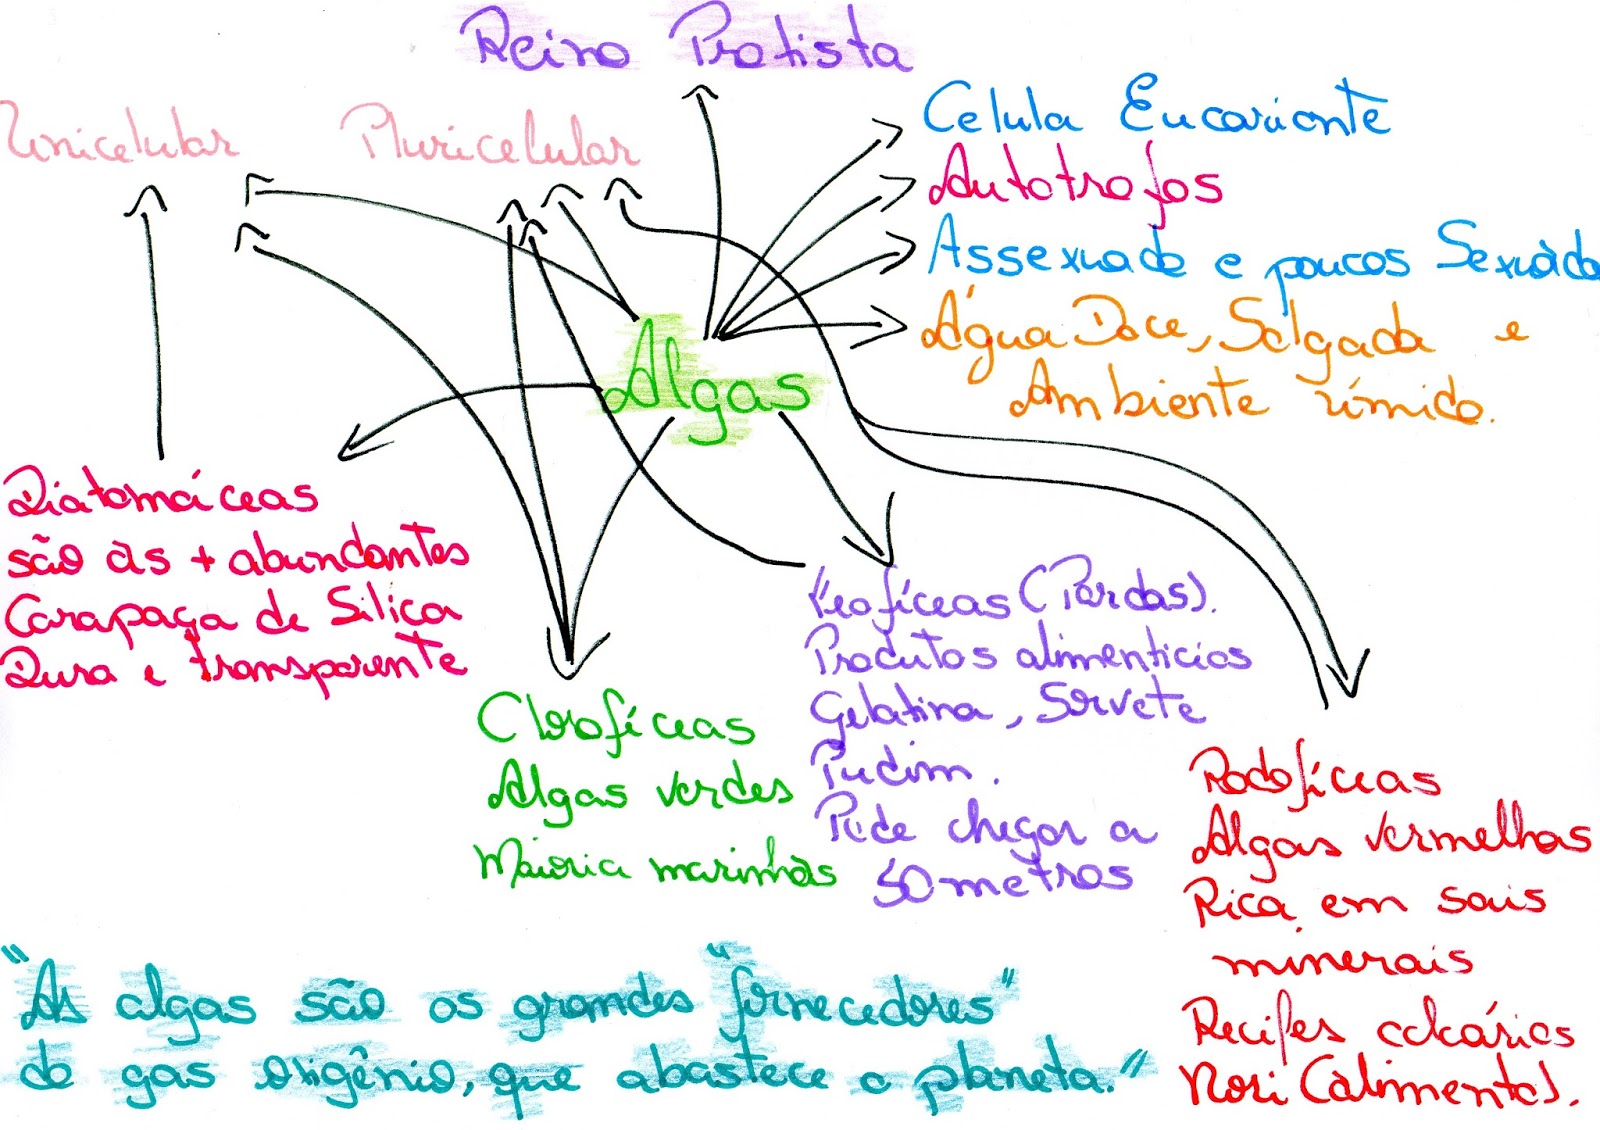 Reino Protista
Unicelular
Pluricelular
Celula Eucarionte
Autotrofos
Assexuada e poucos Sexuada
Água Doce, Salgada e
Ambiente úmido.
Algas
Diatomáceas
são as + abundantes
Carapaça de Silica
Dura e transparente
Clorofíceas
Algas verdes
Maioria marinhas
Feofíceas (Pardas).
Produtos alimenticios
Gelatina, Sorvete
Pudim.
Pode chegar a
50 metros
Rodofíceas
Algas vermelhas
Rica em sais
minerais
Recifes calcários
Nori (alimento).
"As algas são os grandes "fornecedores"
de gas oxigênio, que abastece o planeta."